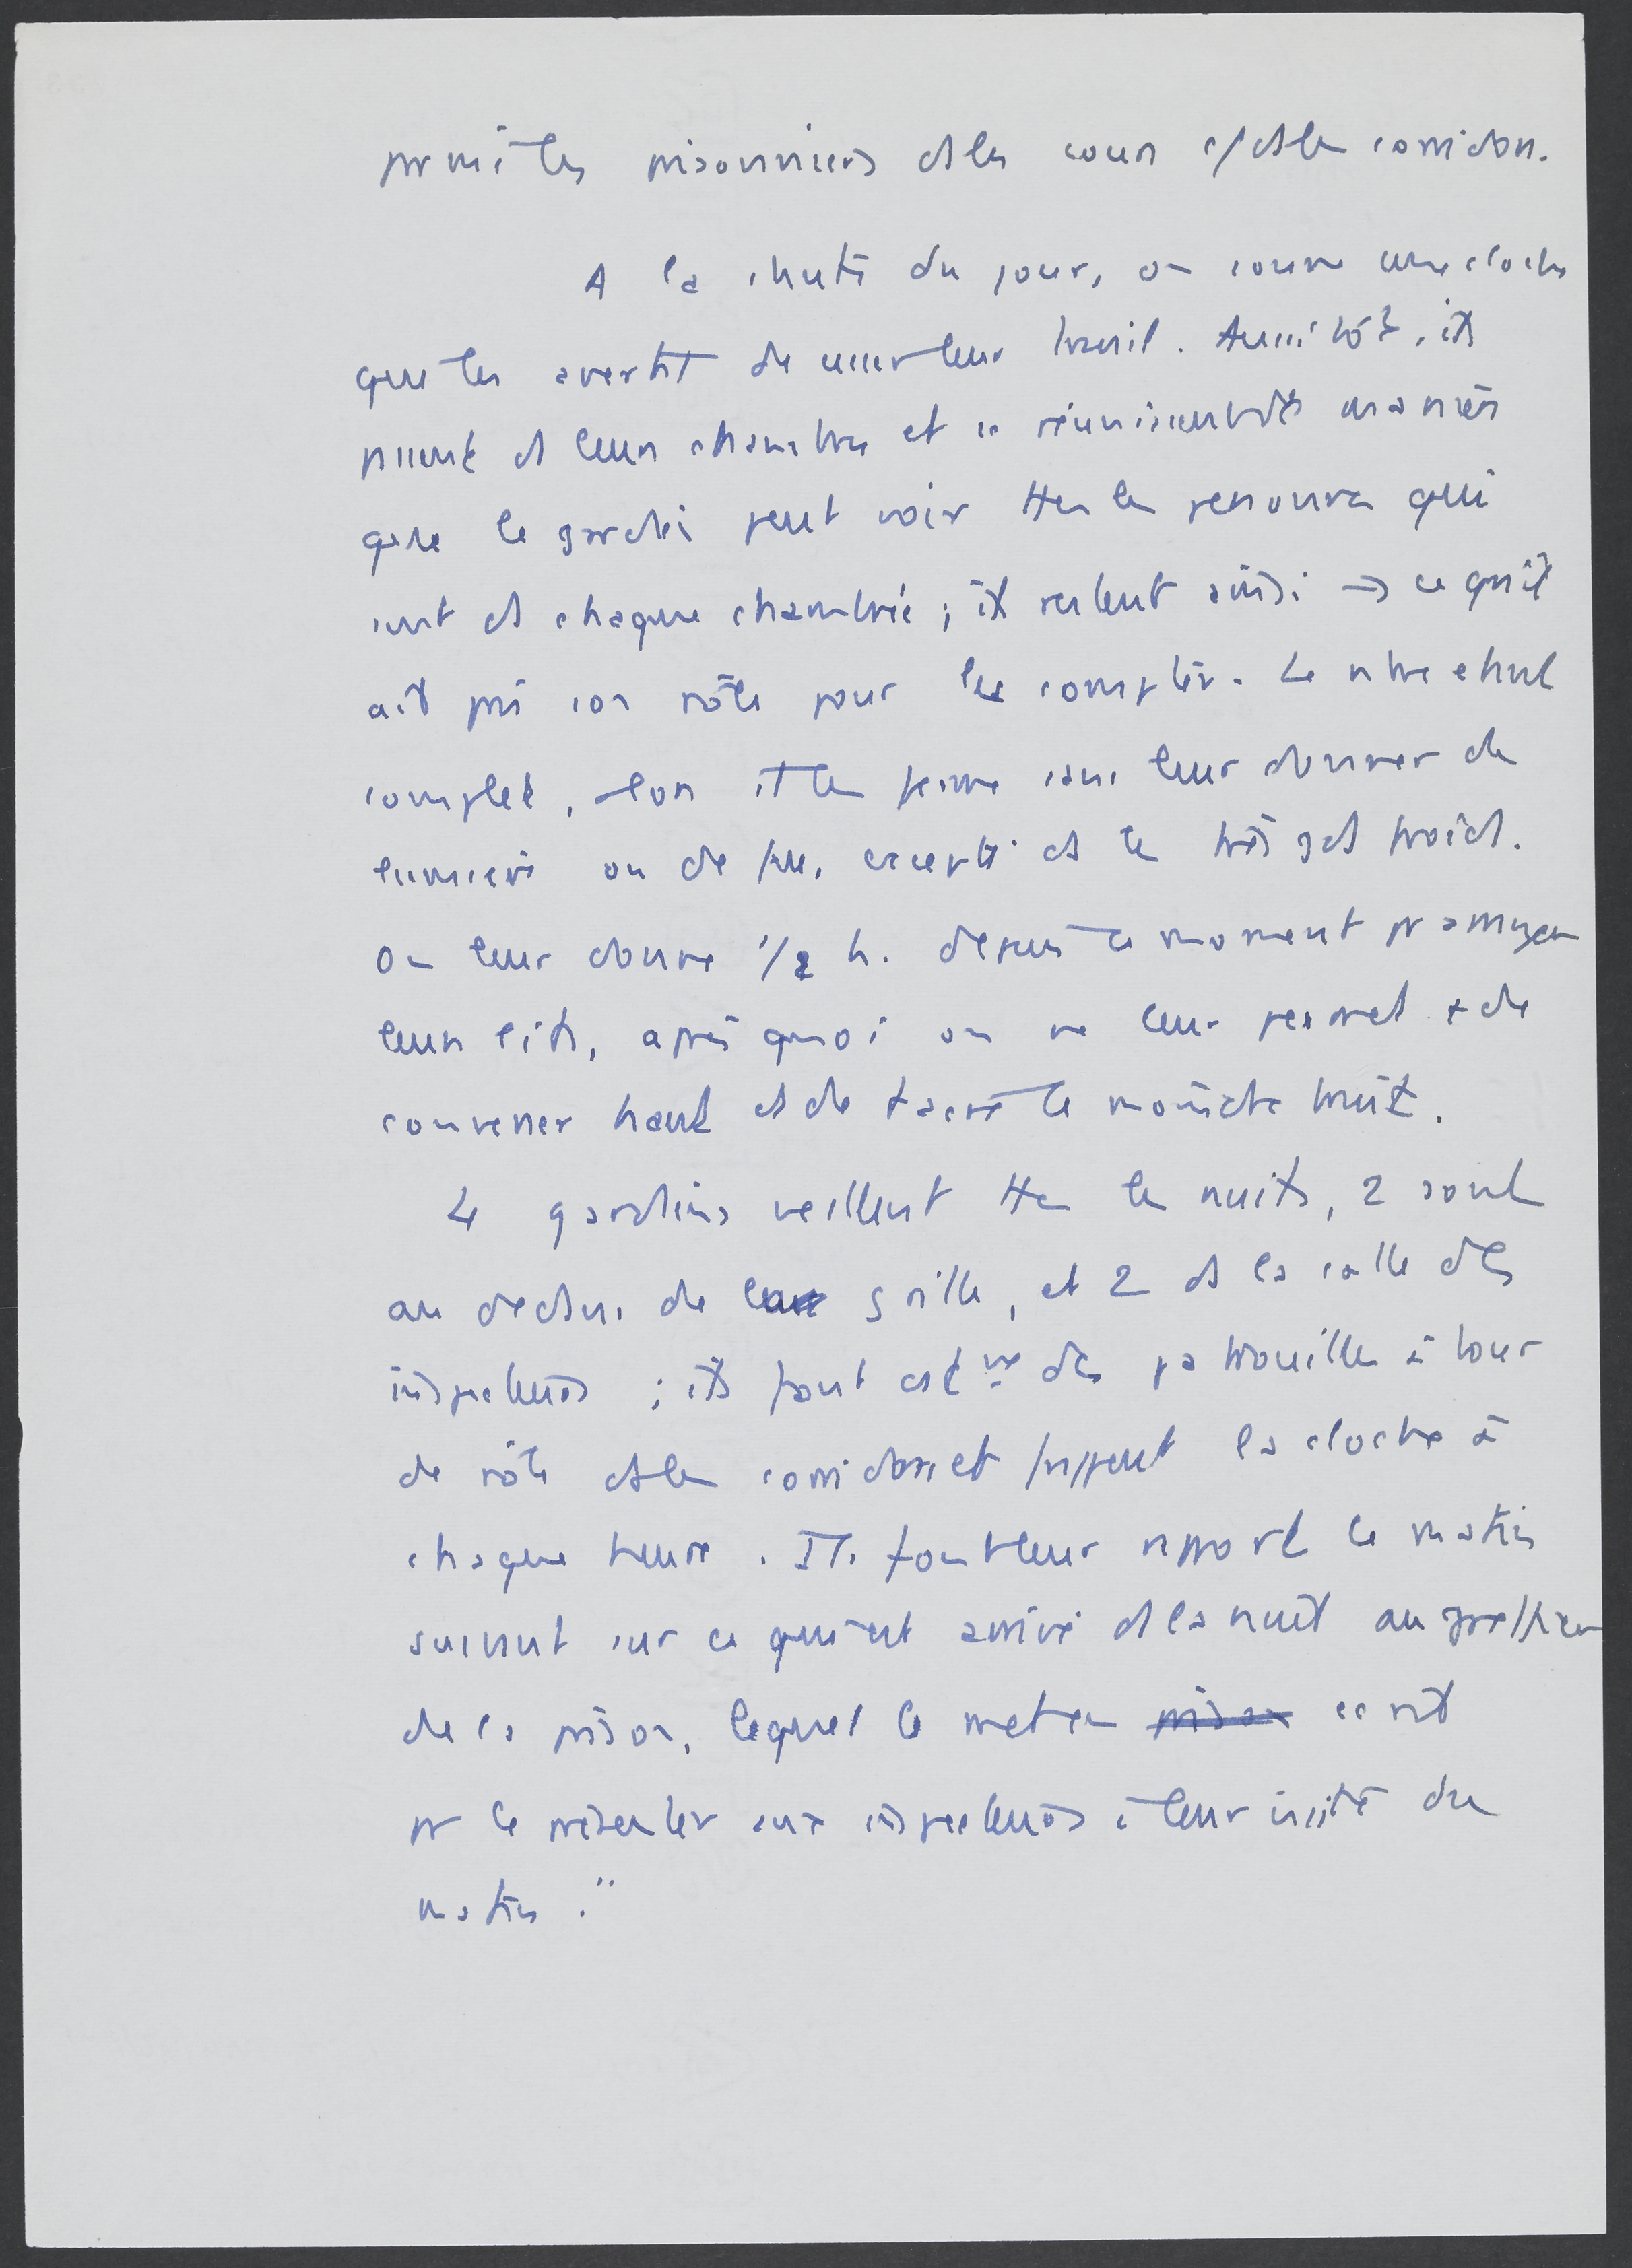 parmi les prisonniers ds les cours et ds les corridors.
A la chute du jour, on sonne une cloche
que les avertit de cesser leur travail. Aussitôt, ils
passent ds leurs chambres et se réunissent de manière
que le gardien peut voir ttes les personnes qui
sont ds chaque chambrée ; ils restent ainsi → ce qu'il
ait pris son rôle pour les compter. Le nbre étant
complet, alors il les ferme sans leur donner de
lumière ou de feu, excepté ds les très gds froids.
On leur donne 1/2 h. depuis ce moment pr arranger
leurs lits, après quoi on ne leur permet + de
converser haut et de faire le moindre bruit.
4 gardiens veillent ttes les nuits, 2 sont
au dedans de la grille, et 2 ds la salle des
inspecteurs ; ils font des patrouilles à tour
de rôle ds les corridors et frappent la cloche à
chaque heure. Ils font leur rapport le matin
suivant sur ce qui est arrivé ds la nuit au greffier
de la prison, lequel le met en prison écrit
pr le présenter aux inspecteurs à leur visite du
matin."